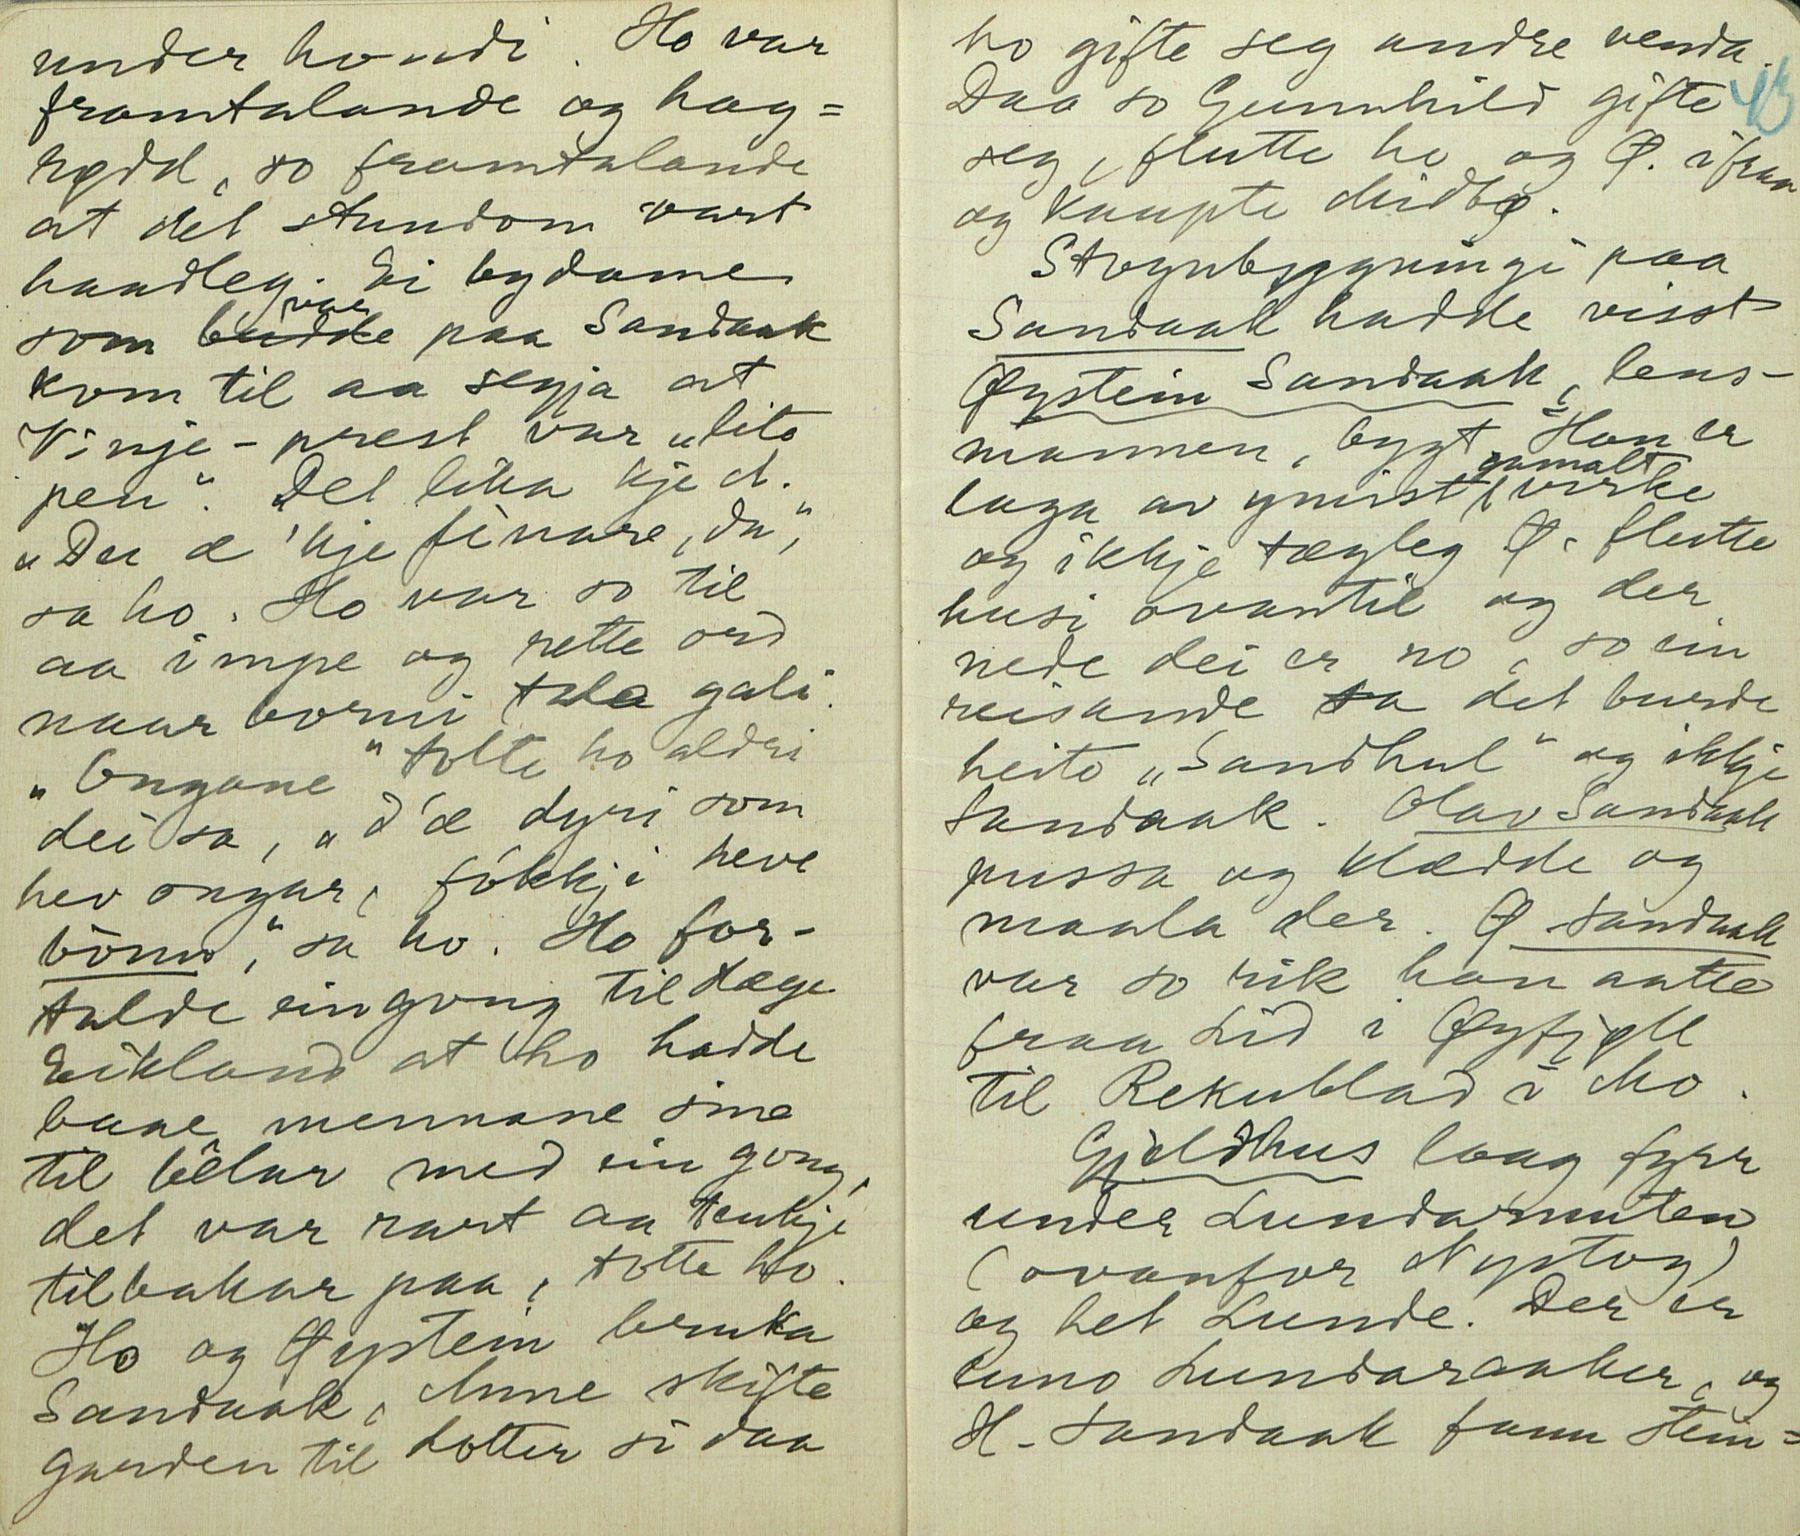 under hondi. Ho var
framtalande og hag=
rødd, so framtalande
at det stundom vart
haadleg. Ei bydame
som budde var paa Sandaak
kom til aa segja at
Vinje-prest var „lite
pen“. Det lika kje A.
„Du æ 'kje finare, du“,
sa ho. Ho var so til
aa impe og rette ord
naar borni tala gali.
„Ongane“ tolte ho aldri
dei sa, „d'æ dyri som
hev ongar, fókkji heve
bónn“, sa ho. Ho for-
talde eingong til Læge
Eikland at ho hadde
baae mennane sine
til bêlar med ein gong,
det var rart aa tenkje
tilbakar paa, totte ho.
Ho og Øystein bruka
Sandaak, Anne skifte
garden til dotter si daa
ho gifte seg andre venda.
43
Daa so Gunnhild gifte
seg, flutte ho og Ø. ifraa
og kaupte Midbø.
Stogubyggningi paa
Sandaak hadde visst
Øystein Sandaak, lens-
mannen, bygt. Hon er
laga av ymist gamalt virke
og ikkje tægleg. Ø. flutte
husi ovantil og der
nede dei er no, so ein
reisande sa det burde
heite „Sandhul“ og ikkje
Sandaak. Olav Sandaak
pussa og klædde og
maala der. Ø Sandaak
var so rik han aatte
fraa Lid i Øyfjell
til Rekublad i Mo.
Gjeldhus laag fyrr
under Lundarnuten
(ovanfor Nystog)
og het Lunde. Der er
enno Lundaraaker, og
H. Sandaak fann stein=